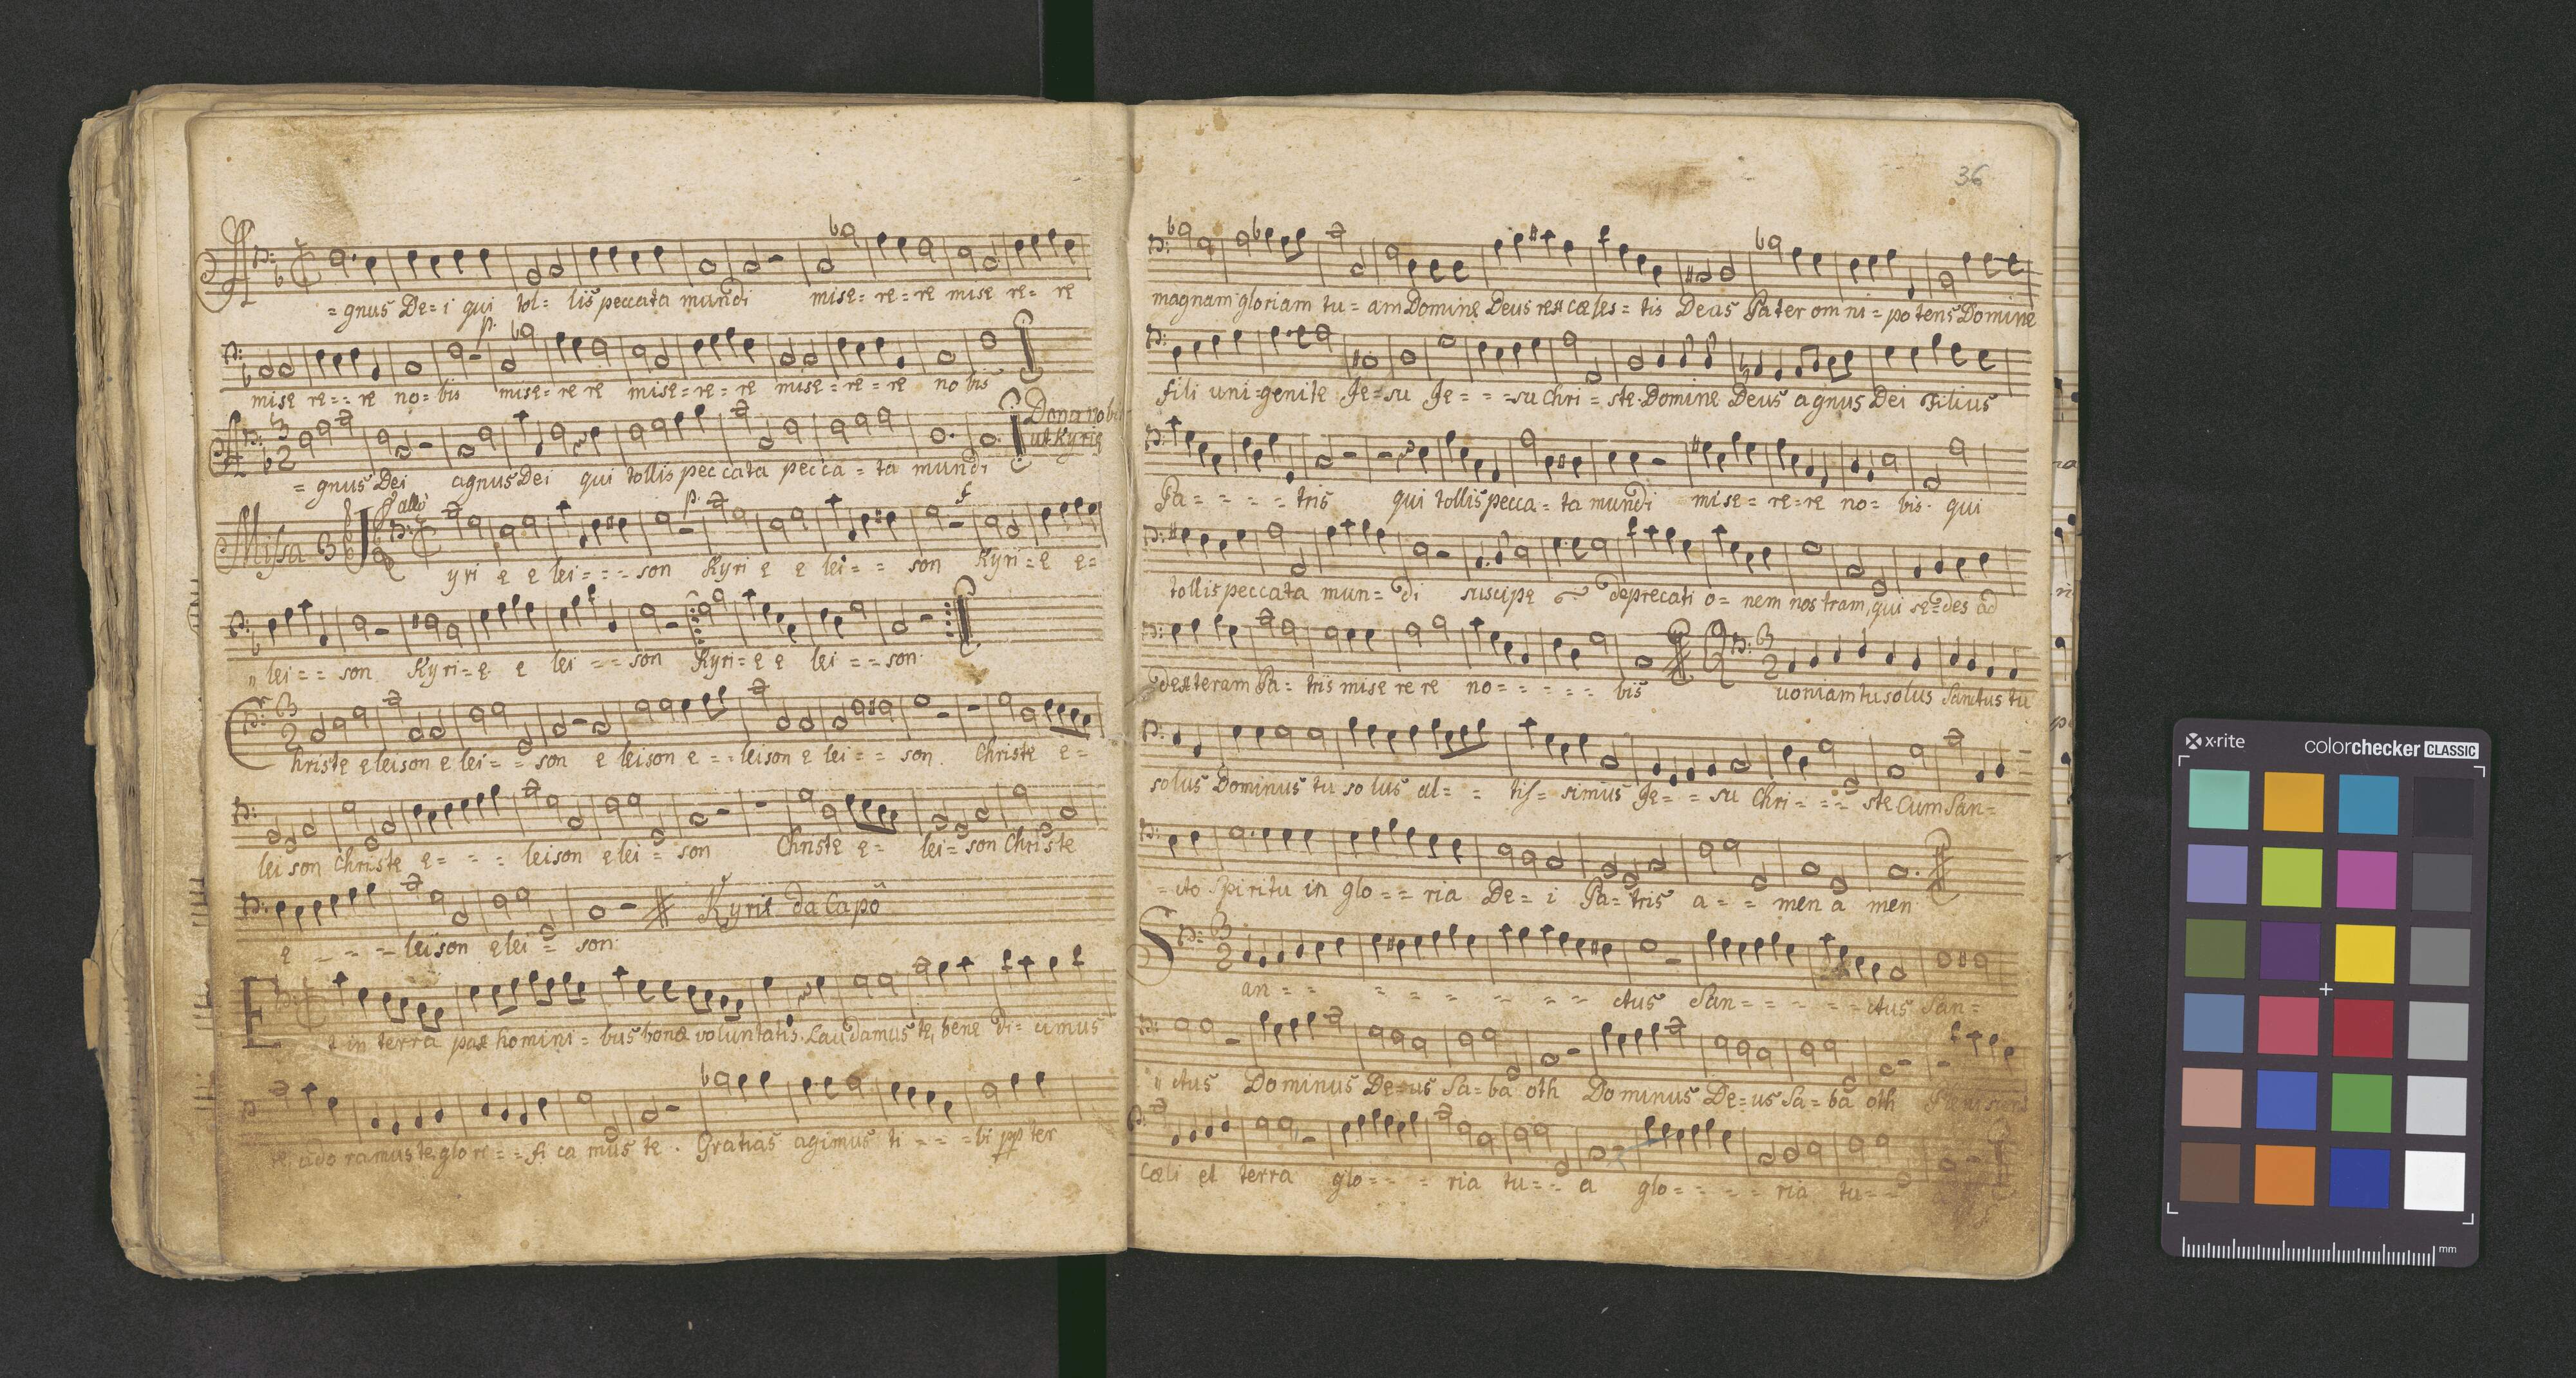 =gnus De=i qui tol= lis peccata mundi mise= re=re mise re= re
p.
mise re==re no=bis mise= re re mise=re=re mise=re=re no bis
=gnus Dei agnus Dei qui tollis peccata pecca=ta mundi
Dona nobis
ut Kyrie
Missa 3
p. f
yri e e lei===son Kyri e e lei== son Kyri=e e=
lei== son Kyri=e e lei ==son Kyri=e e lei ==son.
3
2
hriste eleison e lei==son e leison e==leison e lei== son. Christe e=
lei son Christe e= = = leison elei=son Christe e= lei=son Christe
Kyrie da Capo
e - - - - leison elei = son.
Et in terra pax homini=bus bonæ voluntatis. Laudamus te, bene di=cimus
te, ado ramus te, glo ri==fi ca mus te. Gratias agimus ti===bi pp ter
36
magnam gloriam tu=am Domine Deus rex cæles=tis Deus Pater omni=potens Domine
fili uni=genite Je=su Je===su Chri=ste. Domine Deus agnus Dei Filius
Pa====tris qui tollis pecca=ta mundi mise=re=re no=bis. qui
tollis peccata mun=di suscipe deprecati o=nem nostram, qui se=des ad
3
2
dexteram Pa=tris mise re re no===== bis uoniam tu solus Sanctus tu
solus Dominus tu so lus al== tis=simus Je==su Chri====ste Cum San=
=cto Spiritu in glo==ria De=i Pa=tris a==men a men
3
2
San== = = = = == ctus San=====ctus San=
ctus Dominus De=us Sa=ba oth Dominus De=us Sa=ba oth
cæli et terra glo=== ria tu==a glo==== ria tu==
x·rite
colorchecker CLASSIC
mm